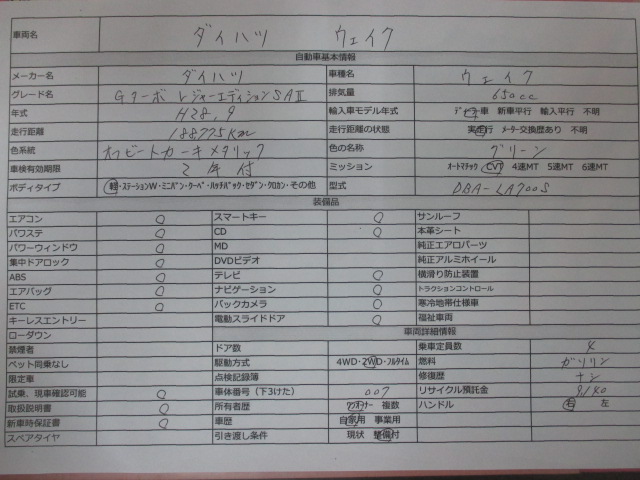 車両名 ダイハツ ウェイク
自動車基本情報
メーカー名 ダイハツ 車種名 ウェイク
グレード名 Gターボ レジャーエディションSAⅡ 排気量 650cc
年式 H28.9 輸入車モデル年式 ディーラー車 新車平行 輸入平行 不明
走行距離 188775Km 走行距離の状態 実走行 メーター交換歴あり 不明
色系統 オフビートカーキメタリック 色の名称 グリーン
車検有効期限 2年付 ミッション オートマチック CVT 4速MT 5速MT 6速MT
ボディタイプ 軽・ステーションW・ミニバン・クーペ・ハッチバック・セダン・クロカン・その他 型式 DBA-LA700S
装備品
エアコン ○ スマートキー ○ サンルーフ
パワステ ○ CD ○ 本革シート
パワーウィンドウ ○ MD 純正エアロパーツ
集中ドアロック ○ DVDビデオ 純正アルミホイール
ABS ○ テレビ ○ 横滑り防止装置
エアバッグ ○ ナビゲーション ○ トラクションコントロール
ETC ○ バックカメラ ○ 寒冷地帯仕様車
キーレスエントリー 電動スライドドア ○ 福祉車両
ローダウン 車両詳細情報
禁煙者 ドア数 乗車定員数 4
ペット同乗なし 駆動方式 4WD・2WD・フルタイム 燃料 ガソリン
限定車 点検記録簿 修復歴 ナシ
試乗、現車確認可能 ○ 車体番号（下3けた） 007 リサイクル預託金 9,140
取扱説明書 ○ 所有者歴 ワンオーナー 複数 ハンドル 右 左
新車時保証書 ○ 車歴 自家用 事業用
スペアタイヤ 引き渡し条件 現状 整備付